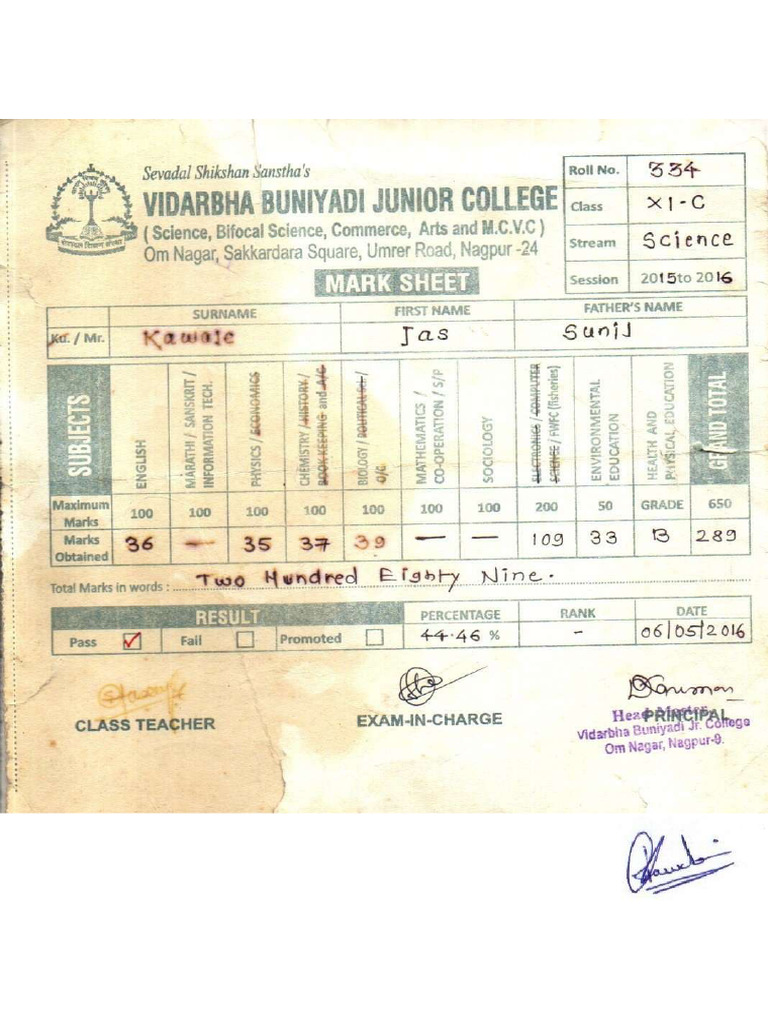 Sevadal Shikshan Sanstha's
VIDARBHA BUNIYADI JUNIOR COLLEGE
( Science, Bifocal Science, Commerce, Arts and M.C.V.C )
Om Nagar, Sakkardara Square, Umrer Road, Nagpur -24
MARK SHEET
Roll No. 334
Class XI-C
Stream Science
Session 2015 to 2016
SURNAME FIRST NAME FATHER'S NAME
Ku. / Mr. Kawale Jas Sunil
SUBJECTS
ENGLISH
MARATHI / SANSKRIT /
INFORMATION TECH.
PHYSICS / ECONOMICS
CHEMISTRY / HISTORY /
BOOK KEEPING and A/C
BIOLOGY / POLITICAL SCI. /
O.C.
MATHEMATICS /
CO-OPERATION / S/P
SOCIOLOGY
ELECTRONICS / COMPUTER
SCIENCE / FWFC (fisheries)
ENVIRONMENTAL
EDUCATION
HEALTH AND
PHYSICAL EDUCATION
GRAND TOTAL
Maximum Marks 100 100 100 100 100 100 100 200 50 GRADE 650
Marks Obtained 36 — 35 37 39 — — 109 33 B 289
Total Marks in words : Two Hundred Eighty Nine.
RESULT PERCENTAGE RANK DATE
Pass ✓ Fail Promoted 44.46 % - 06/05/2016
CLASS TEACHER EXAM-IN-CHARGE PRINCIPAL
Head Master,
Vidarbha Buniyadi Jr. College
Om Nagar, Nagpur-9.